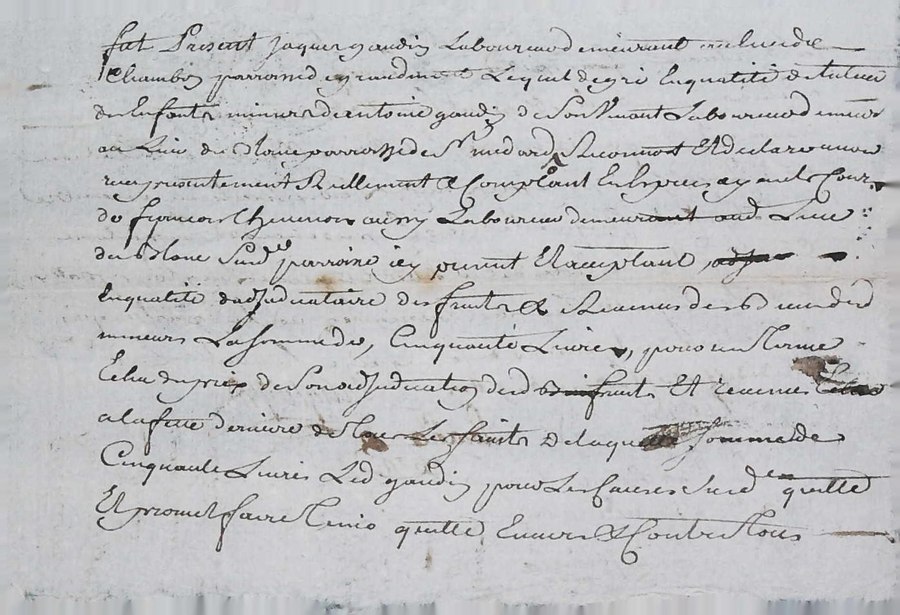 fut Present Jaques gaudin Laboureur demeurant au lieu de
Chambon parroisse dy Lequel degré Enqualité de tuteur
des Enfants mineurs de antoine gaudin de Son vivant Laboureur demeurant
au Lieu du parroisse de St medard Reconnoit Et declare avoir
reçu presentement Réellement & Comptant En Especes ayant Cour
de françois Chenenois aussy Laboureur demeurant aud Lieu
du Susde parroisse icy present Et acceptant
Enqualité dadjudicataire des fruits & Revenus des Biens desd
mineurs La Somme de Cinquante Livres, pour un Terme
Echu du prix de Son adjudication desd fruits Et revenus
a la fête derniere de Tous Les Saints De laquelle Somme de
Cinquante Livres Led gaudin pour Les Causes Susde quitte
Et promet faire Tenir quitte Envers & Contre Tous